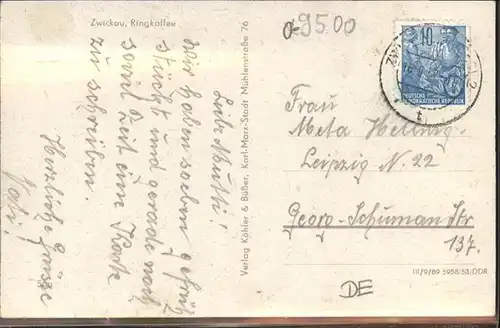 Zwickau, Ringkaffee
Liebe Mutti!
Wir haben soeben gefrüh-
stückt und gerade noch
soviel Zeit eine Karte
zu schreiben.
Herzliche Grüsse
Verlag Köhler & Büßer, Karl-Marx-Stadt Mühlenstraße 76
95.00
10
DEUTSCHE
DEMOKRATISCHE REPUBLIK
Frau
Meta Hellwig
Leipzig N. 22
Georg-Schuman Str
137.
III/9/89 5958/53/DDR
DE